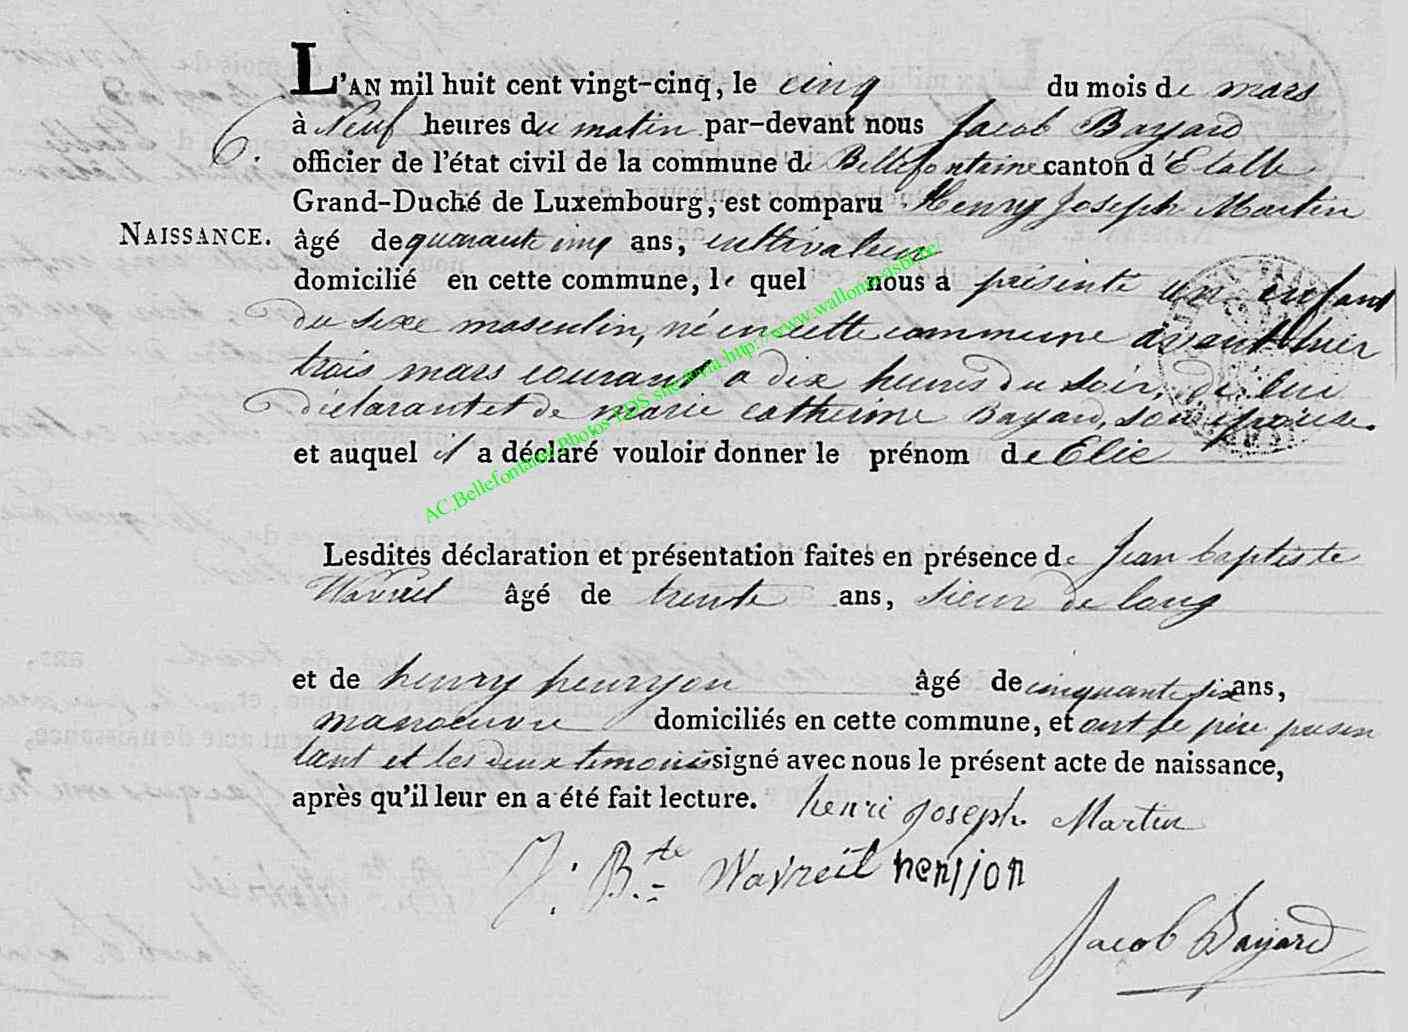 L'AN mil huit cent vingt-cinq, le cinq du mois de mars
à Neuf heures du matin par-devant nous Jacob Bayard
6.
officier de l'état civil de la commune de Bellefontaine canton d'Etalle
Grand-Duché de Luxembourg, est comparu Henry Joseph Martin
NAISSANCE.
âgé de quarante cinq ans, cultivateur
domicilié en cette commune, le quel nous a présenté un enfant
du sexe masculin, né en cette commune avant hier
trois mars courant a dix heures du soir, de lui
déclarant et de marie catherine Bayard, son épouse.
et auquel il a déclaré vouloir donner le prénom de Elie
AC.Bellefontaine Photos TDS site http://www.wallonia
Lesdites déclaration et présentation faites en présence de Jean baptiste
Wavreil âgé de trente ans, sieur de long
et de henry henryon âgé de cinquante six ans,
manoeuvre domiciliés en cette commune, et ont le père présen
tant et les deux temoins signé avec nous le présent acte de naissance,
après qu'il leur en a été fait lecture. henri joseph. Martin
J. B.te Wavreil henrjon
Jacob Bayard